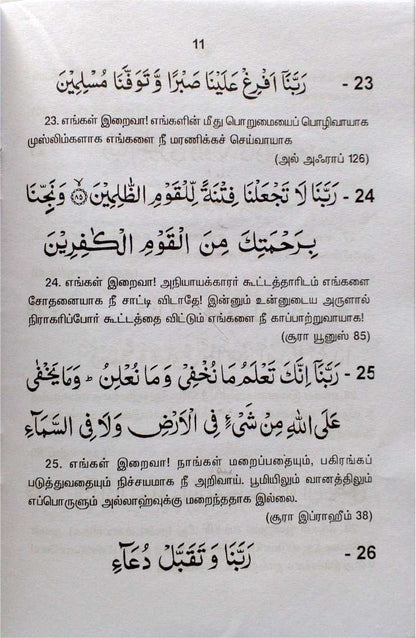 11
23 - رَبَّنَآ اَفْرِغْ عَلَيْنَا صَبْرًا وَّتَوَفَّنَا مُسْلِمِيْنَ
23. எங்கள் இறைவா! எங்களின் மீது பொறுமையைப் பொழிவாயாக
முஸ்லிம்களாக எங்களை நீ மரணிக்கச் செய்வாயாக
(அல் அஃராப் 126)
24 - رَبَّنَا لَا تَجْعَلْنَا فِتْنَةً لِّلْقَوْمِ الظّٰلِمِيْنَ ۝٨٥ وَنَجِّنَا
بِرَحْمَتِكَ مِنَ الْقَوْمِ الْكٰفِرِيْنَ
24. எங்கள் இறைவா! அநியாயக்காரர் கூட்டத்தாரிடம் எங்களை
சோதனையாக நீ சாட்டி விடாதே! இன்னும் உன்னுடைய அருளால்
நிராகரிப்போர் கூட்டத்தை விட்டும் எங்களை நீ காப்பாற்றுவாயாக!
(சூரா யூனுஸ் 85)
25 - رَبَّنَآ اِنَّكَ تَعْلَمُ مَا نُخْفِيْ وَمَا نُعْلِنُ ؕ وَمَا يَخْفٰى
عَلَى اللّٰهِ مِنْ شَيْءٍ فِى الْاَرْضِ وَلَا فِى السَّمَآءِ
25. எங்கள் இறைவா! நாங்கள் மறைப்பதையும், பகிரங்கப்
படுத்துவதையும் நிச்சயமாக நீ அறிவாய். பூமியிலும் வானத்திலும்
எப்பொருளும் அல்லாஹ்வுக்கு மறைந்ததாக இல்லை.
(சூரா இப்ராஹீம் 38)
26 - رَبَّنَا وَتَقَبَّلْ دُعَآءِ